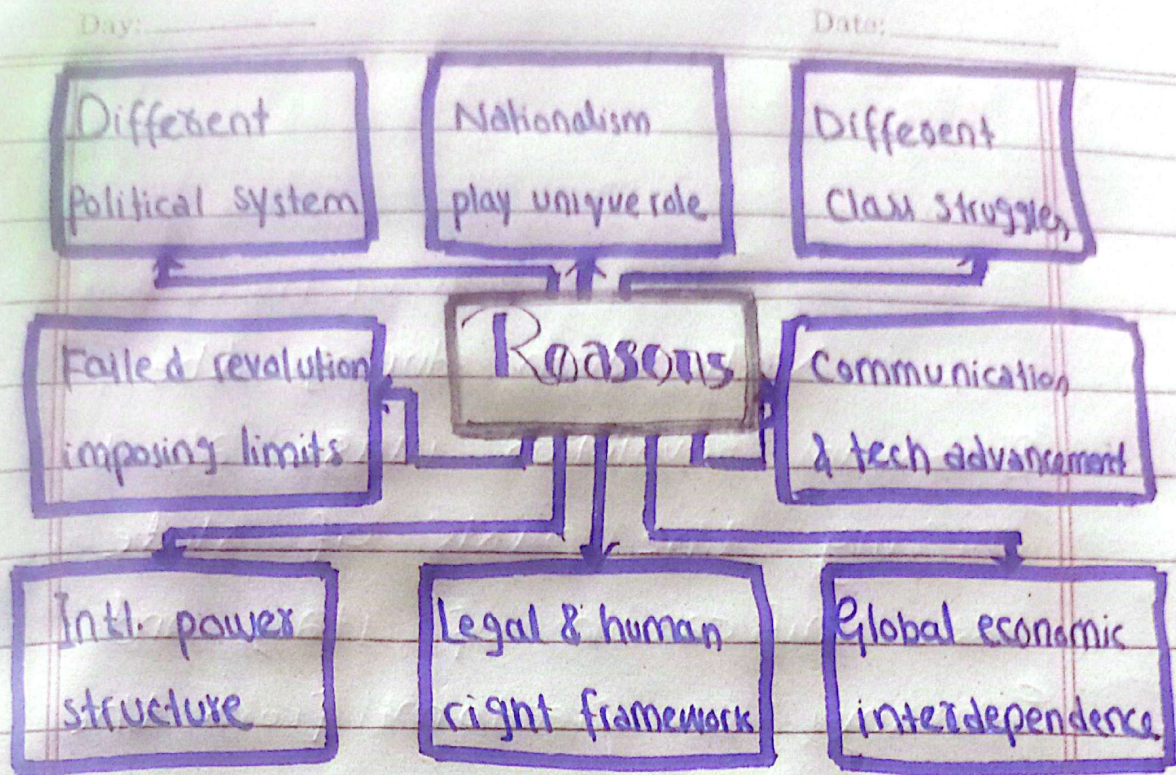 Day:
Date:
Different
Political system
Nationalism
play unique role
Different
Class struggles
Reasons
Failed revolution
imposing limits
Communication
& tech advancement
Intl. power
structure
Legal & human
right framework
Global economic
interdependence